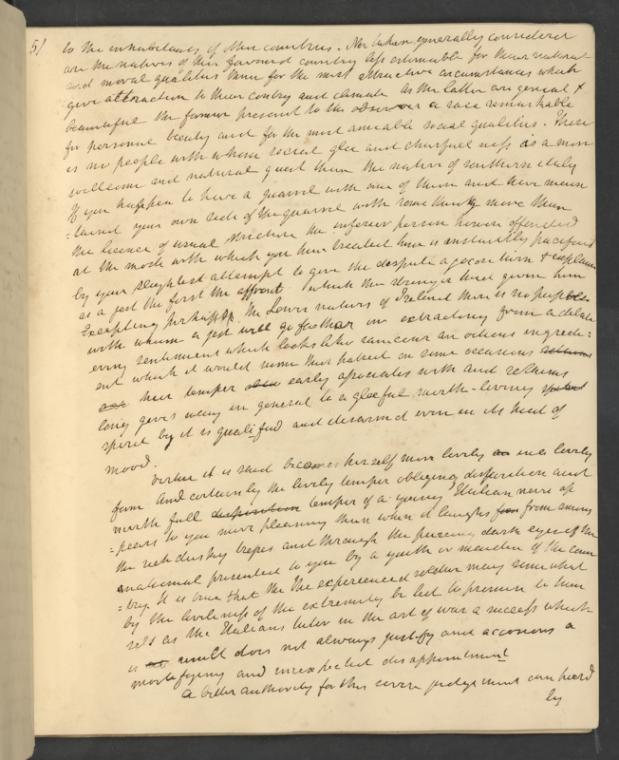 51 to the inhabitants of other countries. Nor taken generally considered
are the natives of this favoured country less estimable for their natural
and moral qualities than for the most attractive circumstances which
give attraction to their country and climate as the latter are genial &
beautiful the former present to the observer a race remarkable
for personal beauty and for the most amiable social qualities. There
is no people with whom social glee and chearfulness is a more
wellcome and natural guest than the native of southern italy
If you happen to have a quarrel with one of them and have main
=tained your own side of the quarrel with some thing more than
the licence of usual the inferior person however offended
at the mode with which you have treated him is instantly pacified
by your slightest attempt to give the dispute a jocose turn & explain
as a jest the first the affront which the stranger had given him
Excepting perhaps the Lower natives of Ireland there is no people
with whom a jest will go farther in extracting from a debate
every sentiment which looks like rancour an odious ingredi=
ent which it would seem their hatred on some occasions
their temper early associates with and retains
long gives way in general to a gleeful mirth-loving
spirit by it is qualified and disarmed even in its heat of
mood.
Virtue it is said becomes herself more lovely in a lovely
form And certainly the lively temper obliging disposition and
mirth full disposition temper of a young Italian never ap
=pears to you more pleasing than when it laughs from among
the rich dusky and through the piercing dark eyes of the
national presented to you by a youth or maiden of the coun
=try. It is true that the the experienced soldier may somewhat
by the of the extremity be led to presume to him
self as the Italians in the art of war a success which
is result does not always justify and occasions a
mortifying and unexpected disappointment
A better authority for this severe judgement can heard
by